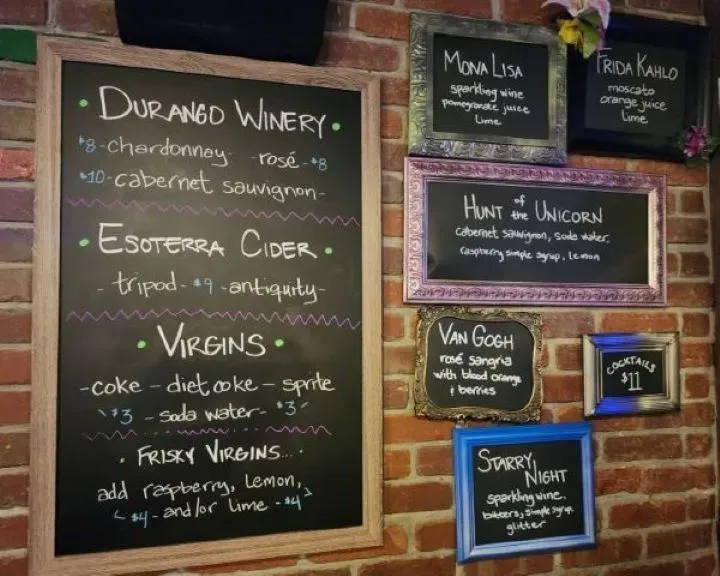 DURANGO WINERY
$8 - chardonnay - rosé - $8
$10 - cabernet sauvignon -
ESOTERRA CIDER
- tripod - $9 - antiquity -
VIRGINS
- coke - diet coke - sprite
$3 - soda water - $3
FRISKY VIRGINS...
add raspberry, lemon,
$4 - and/or lime - $4
MONA LISA
sparkling wine
pomegranate juice
lime
FRIDA KAHLO
moscato
orange juice
lime
HUNT of the UNICORN
cabernet sauvignon, soda water,
raspberry simple syrup, lemon
VAN GOGH
rosé sangria
with blood orange
+ berries
COCKTAILS
$11
STARRY
NIGHT
sparkling wine,
bitters, simple syrup,
glitter